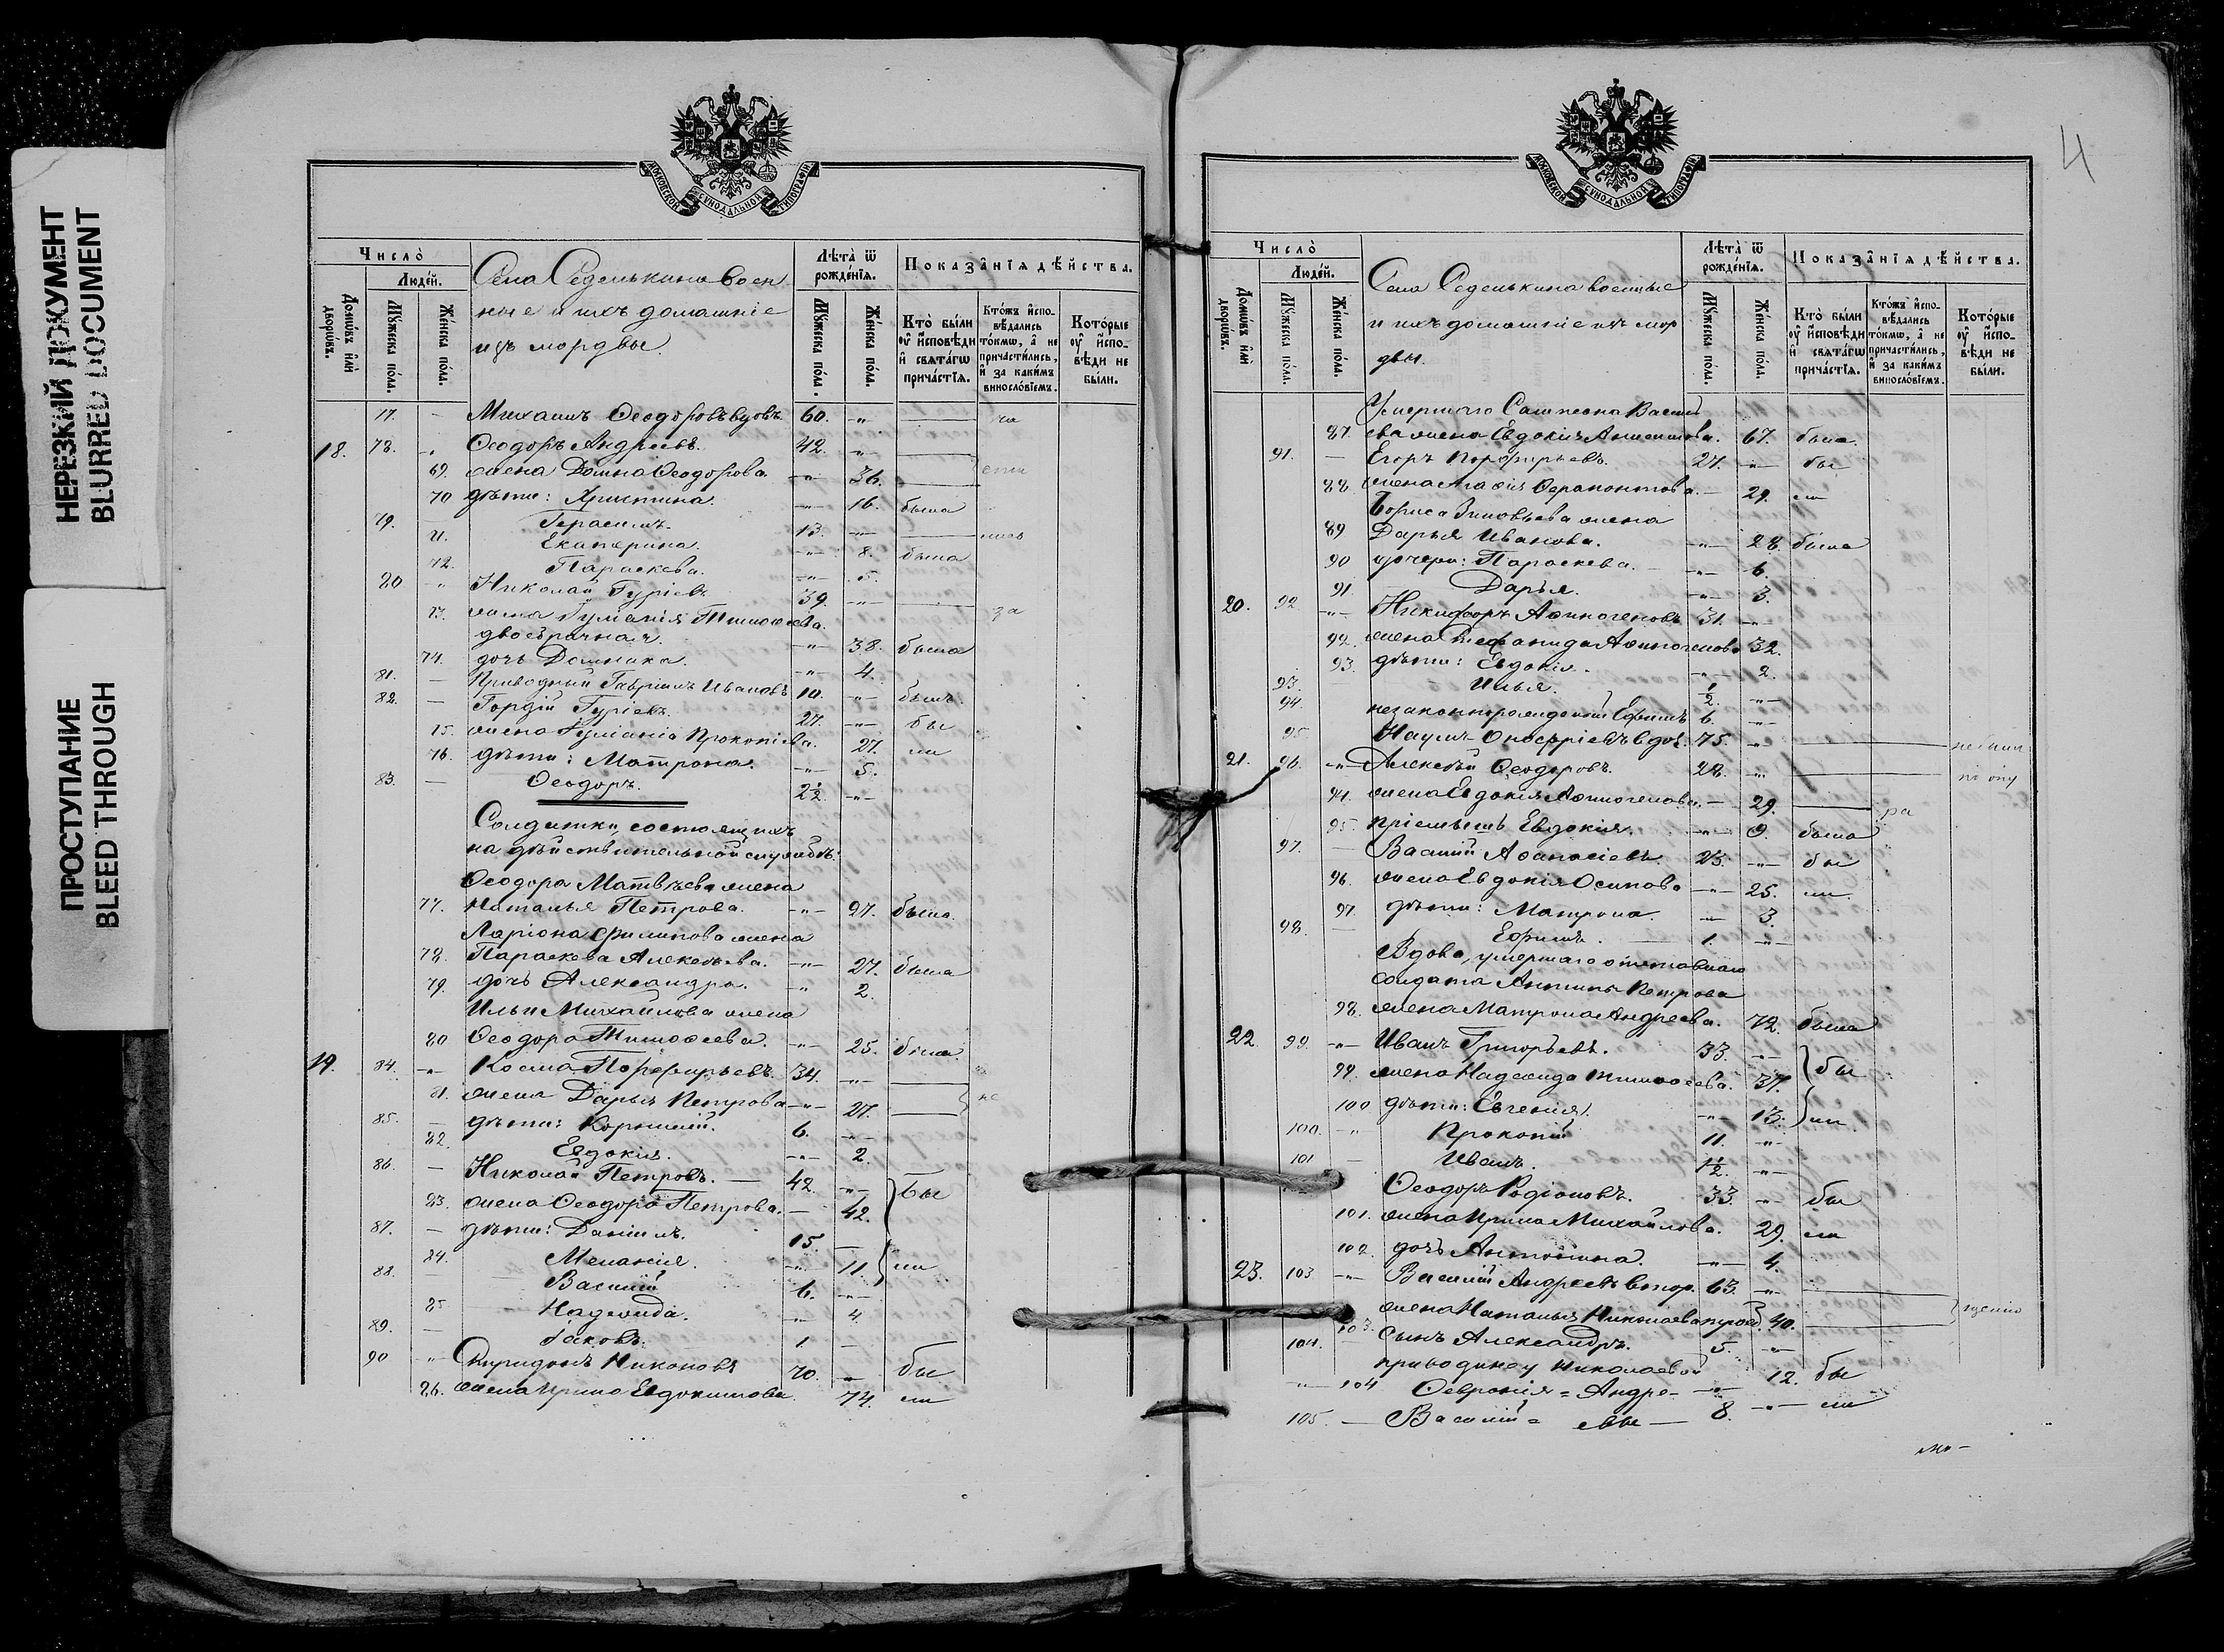 НЕРЕЗКИЙ ДОКУМЕНТ
BLURRED DOCUMENT
ПРОСТУПАНИЕ
BLEED THROUGH
МОСКОВСКОЙ СѴНОДАЛЬНОЙ ТИПОГРАФІИ
Число̀
Люде́й.
Домѡ́въ и҆лѝ дворѡ́въ.
Мꙋ́жеска по́ла.
Же́нска по́ла.
Села Седелькина воен
ные и ихъ домашніе
изъ мордвы.
Лѣта̀ ѿ рожде́нїѧ.
Мꙋ́жеска по́ла.
Же́нска по́ла.
Показа̑нїѧ дѣ́йства.
Кто̀ бы́ли ᲂу҆ и҆сповѣ́ди и҆ свѧта́гѡ причⷭ҇тїѧ.
Кто́жъ и҆сповѣ́дались то́кмѡ, а҆ не причасти́лись, и҆ за каки́мъ винослⷪ҇вїемъ.
Кото́рые ᲂу҆ и҆сповѣ́ди не бы́ли.
77. — Михаилъ Ѳеодоровъ вдовъ. 60. -"-
18. 78. -" Ѳеодоръ Андреевъ. 42. -"-
69. жена Домна Ѳеодорова. -"- 36.
70 дѣти: Христина. -"- 16. была
79. — Герасимъ. 13. -"-
71. Екатерина. -"- 8. была
72. Параскева. -"- 5.
80 -" Николай Гуріевъ 39. -"- за
73. жена Іуліанія Тимоѳеева.
двоебрачная. -"- 38. была
74. дочь Домника. -"- 4.
81. — Приводный Гавріилъ Ивановъ 10. -"- былъ.
82. — Гордій Гуріевъ. 27. -"- бы
75. жена Іуліанія Прокопіева. 27. ли
76. дѣти: Матрона. -"- 5.
83. — Ѳеодоръ. 2½. -"-
Солдатки, состоящихъ
на дѣйствительной службѣ:
Ѳеодора Матвѣева жена
77. Наталья Петрова. -"- 27. была.
Ларіона Филипова жена
78. Параскева Алексѣева. -"- 27. была
79. дочь Александра. -" 2.
Ильи Михайлова жена
80 Ѳеодора Тимоѳеева. -"- 25. была.
19. 84. -" Косма Порфирьевъ. 34. -"-
81. жена Дарья Петрова -"- 27. не
85. — дѣти: Корнилій. 6. -"-
82. Евдокія. -"- 2.
86. — Николай Петровъ. — 42. -"- бы
83. жена Ѳеодора Петрова. — 42.
87. — дѣти: Даніилъ. 15. —
84. Меланія. -" 11. ли
88. — Василій 6. -"-
85 Надежда. -" 4.
89. — Іаковъ. 1. —
90 -" Спиридонъ Никоновъ 70. -" бы
86. жена Ирина Евдокимова 74. ли
4
МОСКОВСКОЙ СѴНОДАЛЬНОЙ ТИПОГРАФІИ
Число̀
Люде́й.
Домѡ́въ и҆лѝ дворѡ́въ.
Мꙋ́жеска по́ла.
Же́нска по́ла.
Села Седелькина военные
и ихъ домашніе изъ мор
двы.
Лѣта̀ ѿ рожде́нїѧ.
Мꙋ́жеска по́ла.
Же́нска по́ла.
Показа̑нїѧ дѣ́йства.
Кто̀ бы́ли ᲂу҆ и҆сповѣ́ди и҆ свѧта́гѡ прича́стїѧ.
Кто́жъ и҆сповѣ́дались то́кмѡ, а҆ не причасти́лись, и҆ за каки́мъ винослⷪ҇вїемъ.
Кото́рые ᲂу҆ и҆сповѣ́ди не бы́ли.
Умершаго Сампсона Васил
87. ева жена Евдокія 67. была.
91. — Егоръ Порфирьевъ. 27. -"- бы
88. жена Ѳерапонтова. — 29. ли
Бориса Зиновьева жена
89 Дарья Иванова. -"- 28. была
90 дочери: Параскева. -"- 6.
91 Дарья. -"- 3.
20. 92 -"- Никифоръ Аѳиногеновъ 31. -"-
92. жена Стефанида Аѳиногенова 32.
93. дѣти: Евдокія. -"- 2.
93. Илья. ½. -"-
94. незаконнорожденный Ефимъ 6. -"-
95 Наумъ вдов. 75. -"
21. 96. -"- Алексѣй Ѳеодоровъ. 28. -"-
94. жена Евдокія Аѳиногенова. — 29. ра
95. пріемышъ Евдокія. -"- 9. была
97. Василій Аѳанасіевъ. 23. -"- бы
96. жена Евдокія Осипова -"- 25. ли.
97. дѣти: Матрона. -"- 3.
98. — Ефимъ. 1. -"-
Вдова, умершаго отставнаго
солдата Антипа Петрова
98. жена Матрона Андреева. 72. была
22 99. -"- Иванъ Григорьевъ. 33. -"- бы
99. жена Надежда Тимоѳеева. 37.
100 дѣти: Евгенія. -"- 13. ли
100. -" Прокопій 11. -"-
101 — Иванъ. 1½. -"-
Ѳеодоръ Родіоновъ. 33. -"- бы
101. жена Ирина Михайлова. 29. ли
102. дочь Антонина. -"- 4.
23. 103 -"- Василій Андреевъ втор. 63. -"-
103. жена Наталья Николаева 40. щенію
104. — сынъ Александръ. 5. -"-
приводные у Николаевой
-" 104 Ѳевронія = Андре- -"- 12. бы
105. — Василій = евы — 8. -"- ли
мо-